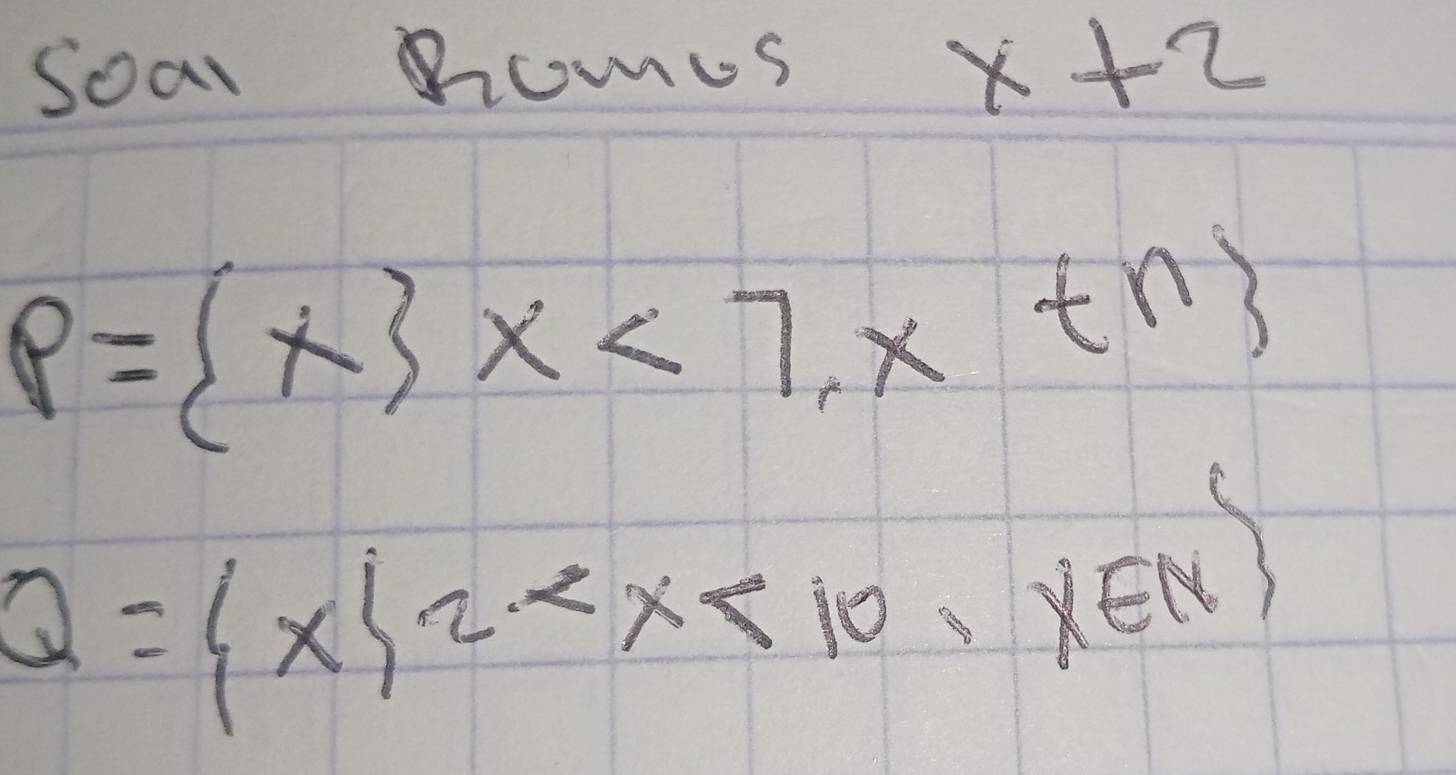 Soan Romos x+2
P={x} x<7, x t n}
Q={x} 2<x<10, x∈N}